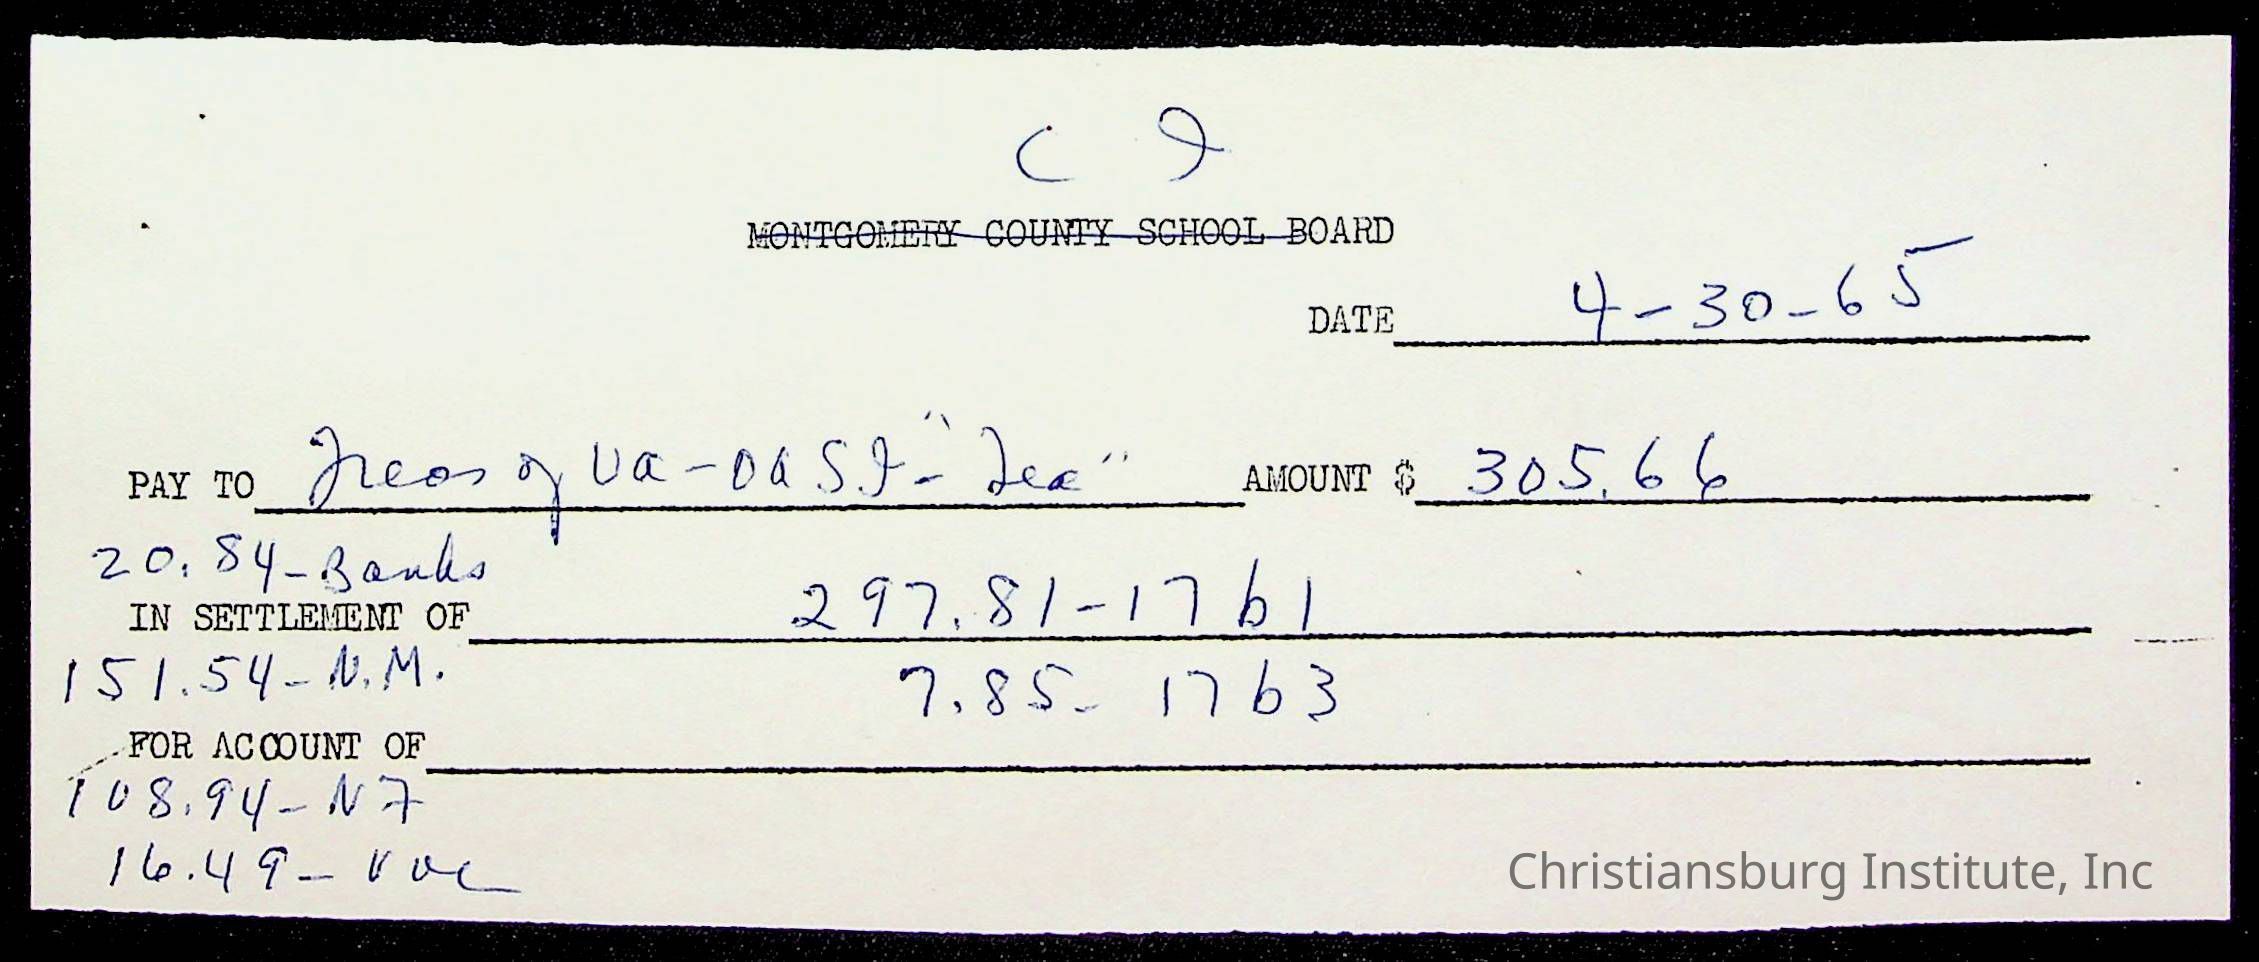 C I
MONTGOMERY COUNTY SCHOOL BOARD
DATE 4-30-65
PAY TO Treas of Va - OASI - "Tea" AMOUNT $ 305.66
20.84 - Banks
IN SETTLEMENT OF 297.81 - 1761
151.54 - N.M. 7.85 - 1763
FOR ACCOUNT OF
108.94 - NF
16.49 - Voc
Christiansburg Institute, Inc